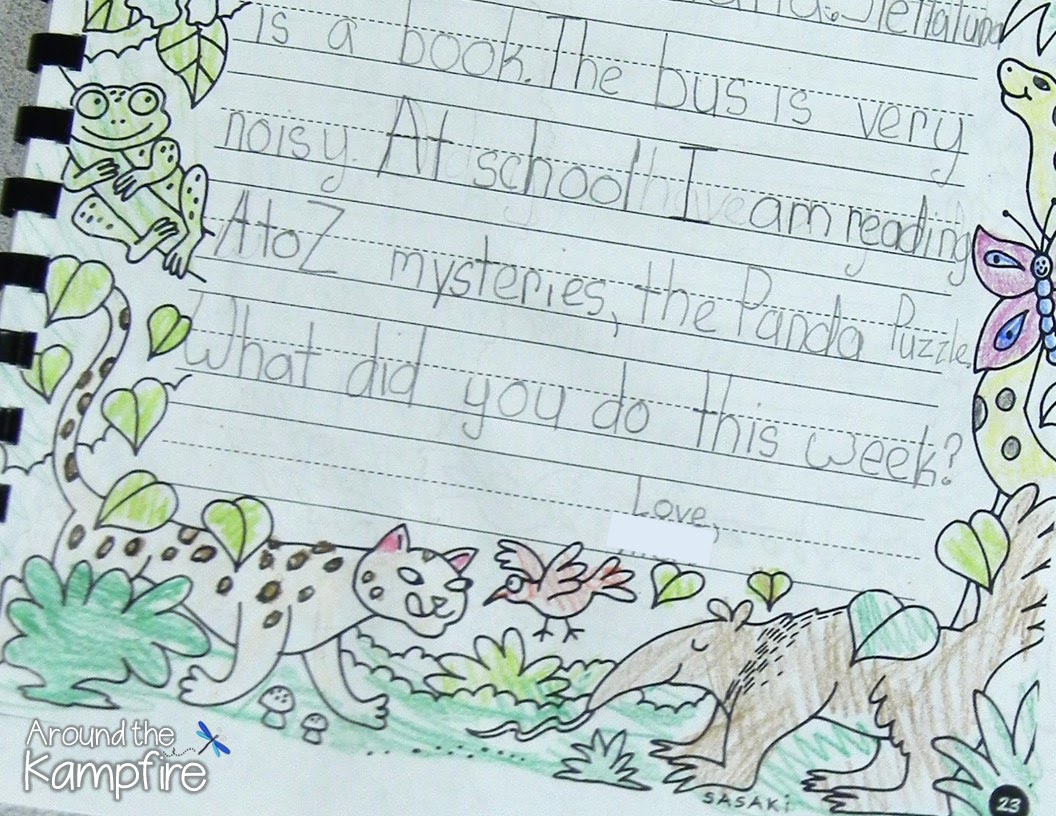 is a book. The bus is very
noisy. At school I am reading
A to Z mysteries, the Panda Puzzle.
What did you do this week?
Love,
Around the
Kampfire
SASAKi
23